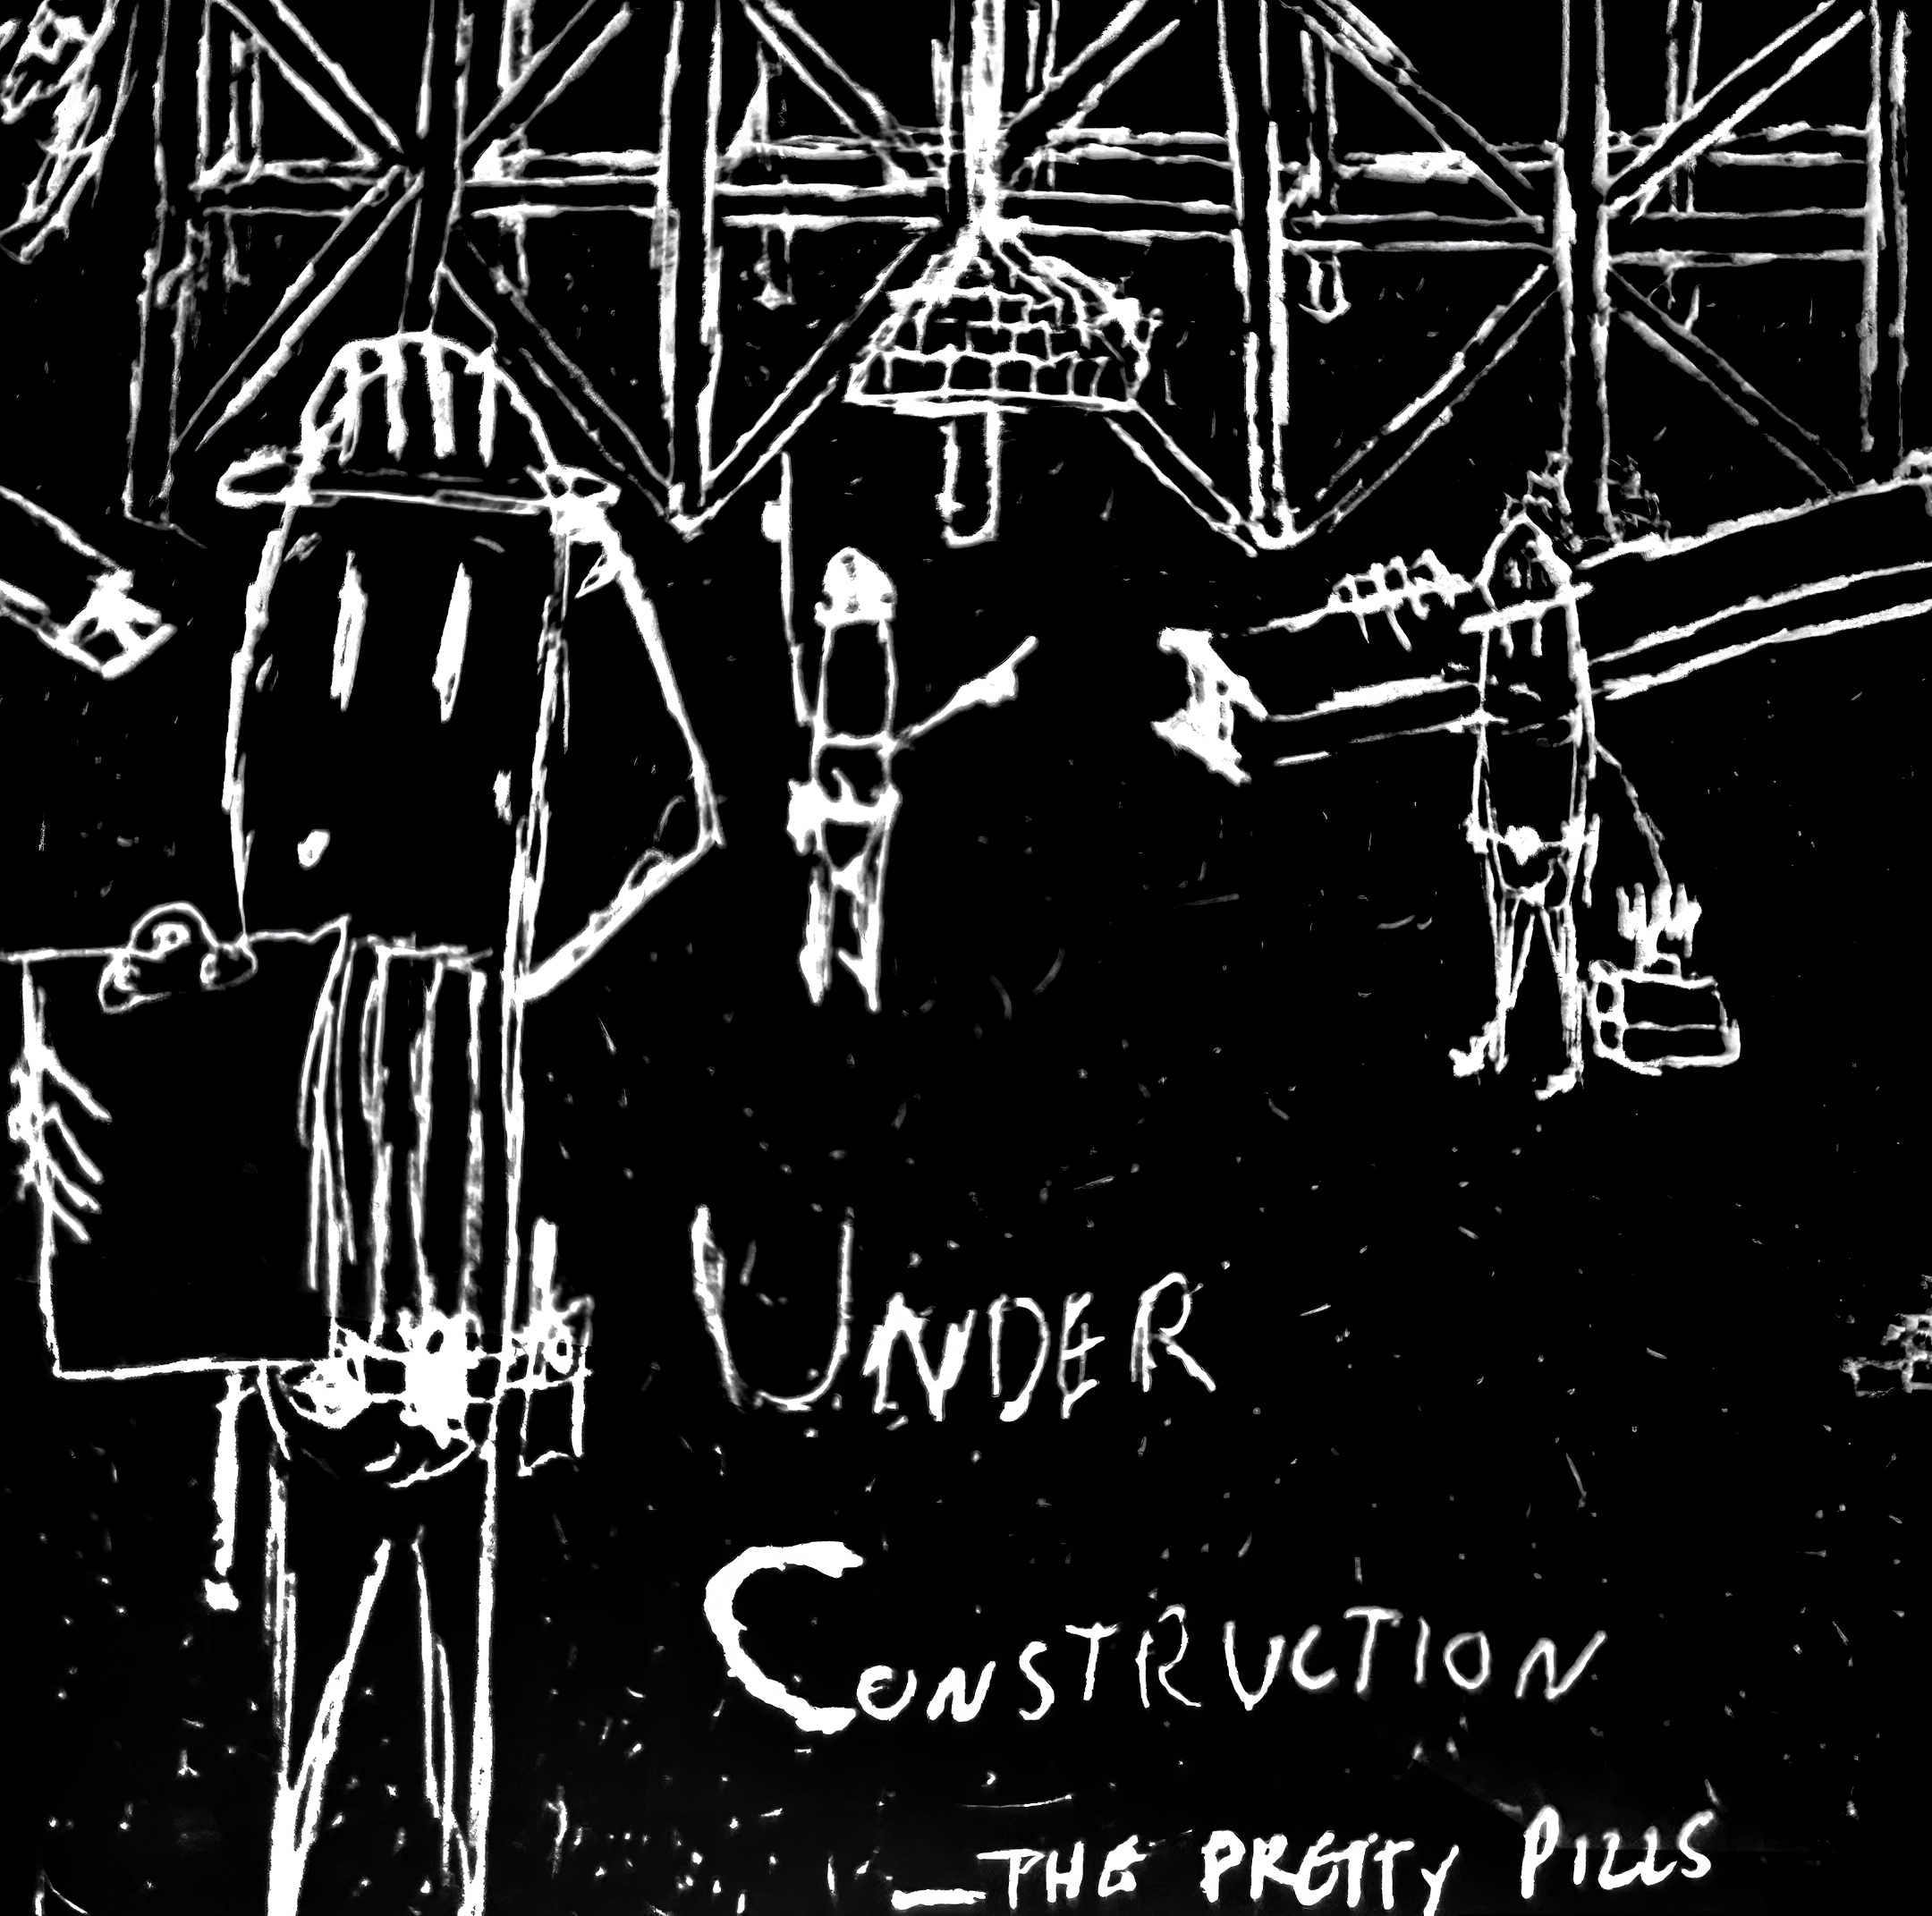 UNDER
CONSTRUCTION
_THE PRETTY PILLS